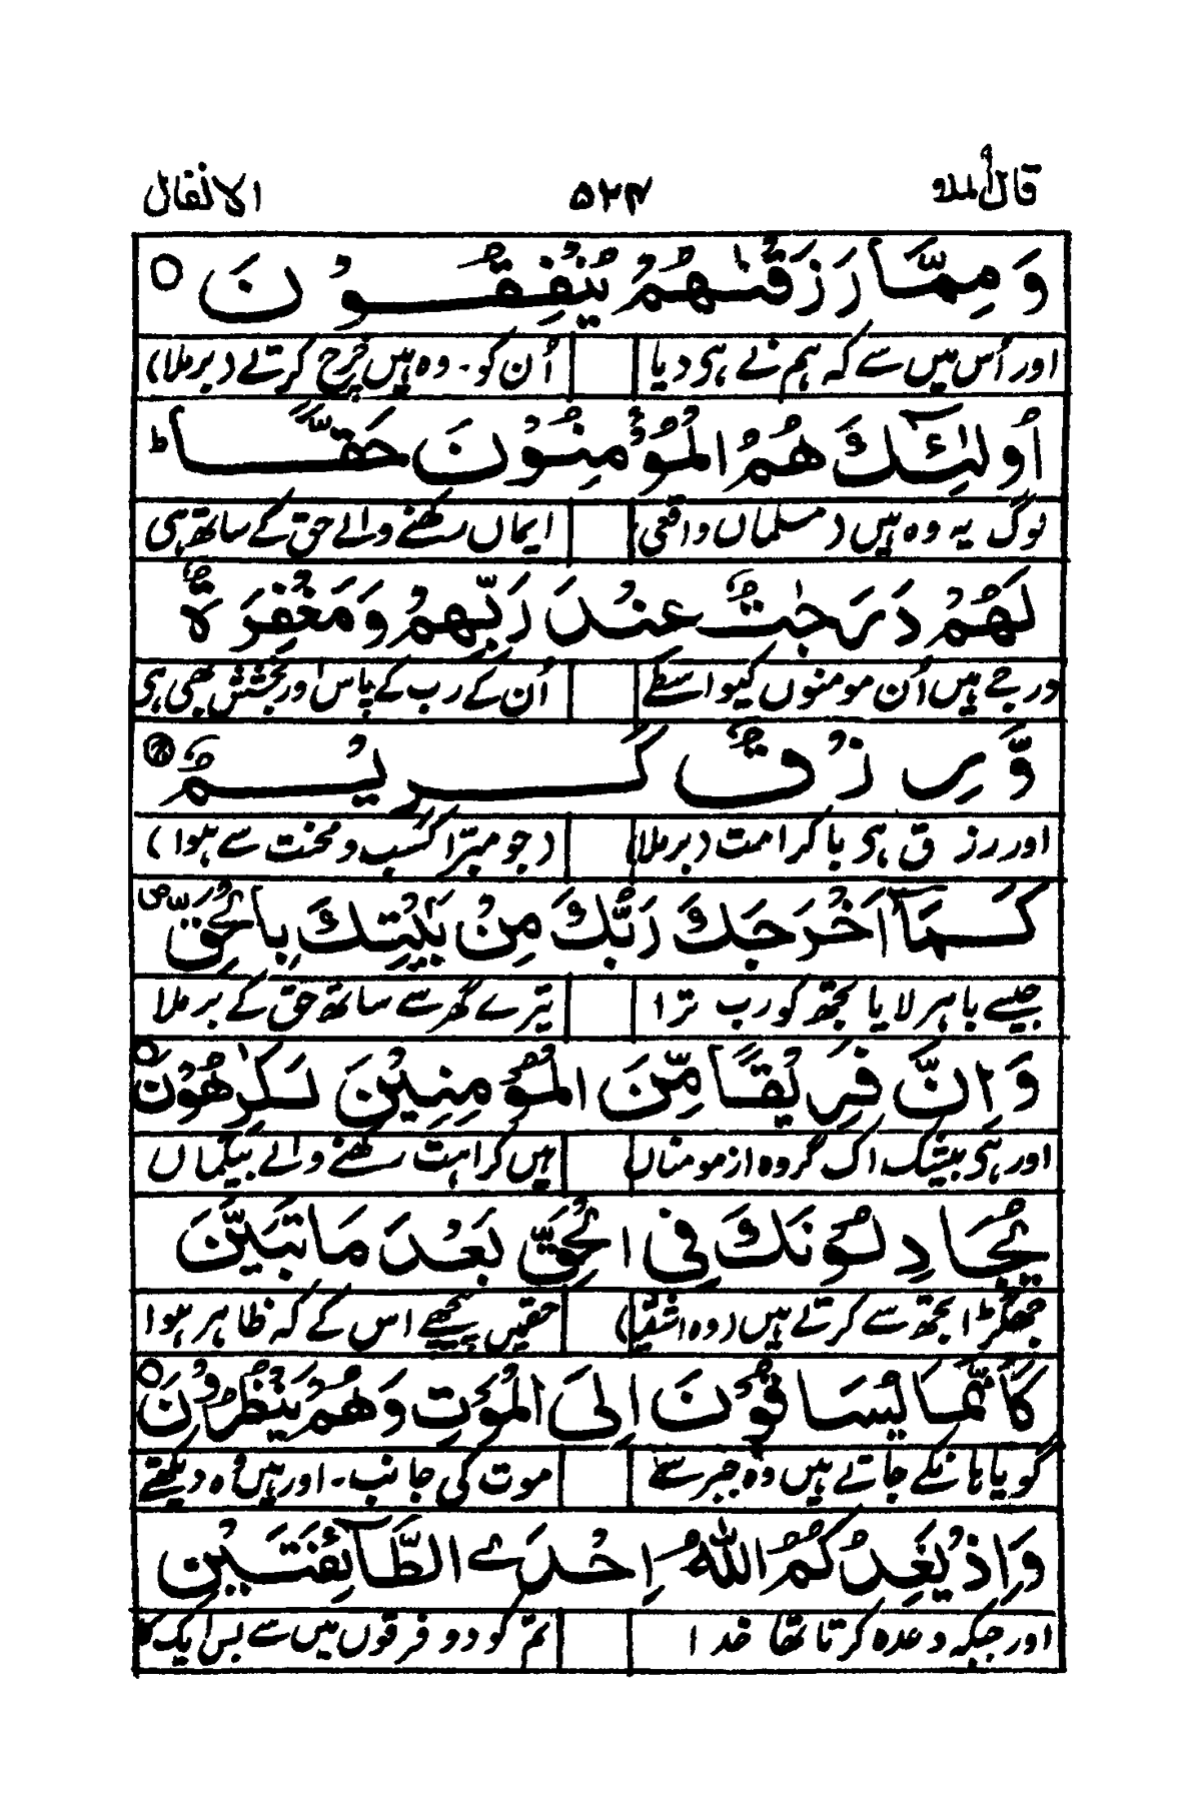 قال الملا ۹ ۵۲۴ الانفال
وَمِمَّا رَزَقْنٰهُمْ يُنْفِقُوْنَ ○
اور اُس میں سے کہ ہم نے ہی دیا اُن کو۔ وہ ہیں خرچ کرتے (برملا)
اُولٰٓئِكَ هُمُ الْمُؤْمِنُوْنَ حَقًّا ؕ
لوگ یہ وہ ہیں (مسلماں واقعی ایماں رکھنے والے حق کے ساتھ ہی
لَهُمْ دَرَجٰتٌ عِنْدَ رَبِّهِمْ وَمَغْفِرَةٌ
درجے ہیں اُن مومنوں کیواسطے اُن کے رب کے پاس اور بخشش بھی ہی
وَّرِزْقٌ كَرِيْمٌ
اور رزق ہی باکرامت (برملا) (جو مبرّا کسب و محنت سے ہوا)
كَمَآ اَخْرَجَكَ رَبُّكَ مِنْۢ بَيْتِكَ بِالْحَقِّ ص
جیسے باہر لایا تجھ کو رب ترا تیرے گھر سے ساتھ حق کے برملا
وَاِنَّ فَرِيْقًا مِّنَ الْمُؤْمِنِيْنَ لَكٰرِهُوْنَ ○
اور ہی بیشک اک گروہ از مومناں ہیں کراہت رکھنے والے بیگماں
يُجَادِلُوْنَكَ فِى الْحَقِّ بَعْدَ مَا تَبَيَّنَ
جھگڑا تجھ سے کرتے ہیں (وہ اشقیا) حقمیں پیچھے اس کے کہ ظاہر ہوا
كَاَنَّمَا يُسَاقُوْنَ اِلَى الْمَوْتِ وَهُمْ يَنْظُرُوْنَ ○
گویا ہانکے جاتے ہیں وہ جبر سے موت کی جانب۔ اور ہیں وہ دیکھتے
وَاِذْ يَعِدُكُمُ اللّٰهُ اِحْدَى الطَّآئِفَتَيْنِ
اور جبکہ وعدہ کرتا تھا خدا تم کو دو فرقوں میں سے بس ایک کا